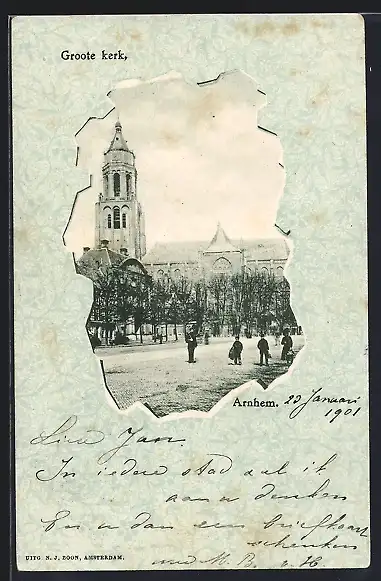 Groote kerk,
Arnhem. 23 Januari
1901
Lieve Jan
In iedere stad zal ik
aan u denken
En u dan een briefkaart
schenken
UITG. N. J. BOON, AMSTERDAM.